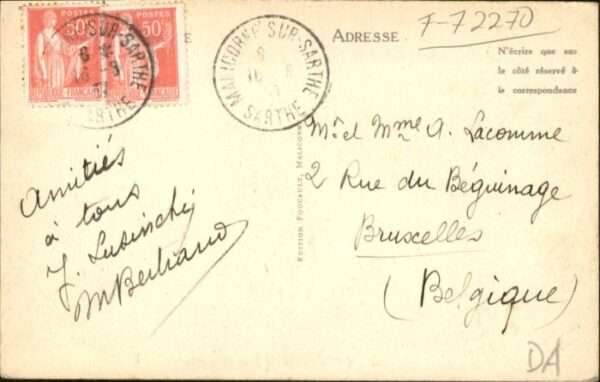 POSTES 50c POSTES 50c
REPUBLIQUE FRANÇAISE
MALICORNE-SUR-SARTHE
SARTHE
F-72270
ADRESSE
N'écrire que sur
le côté réservé à
la correspondance
Amitiés
à tous
J. Lusinchi
M Bertrand
EDITION FOUCAULT, MALICORNE
Mr et Mme A. Lacomme
2 Rue du Béguinage
Bruxelles
(Belgique)
DA